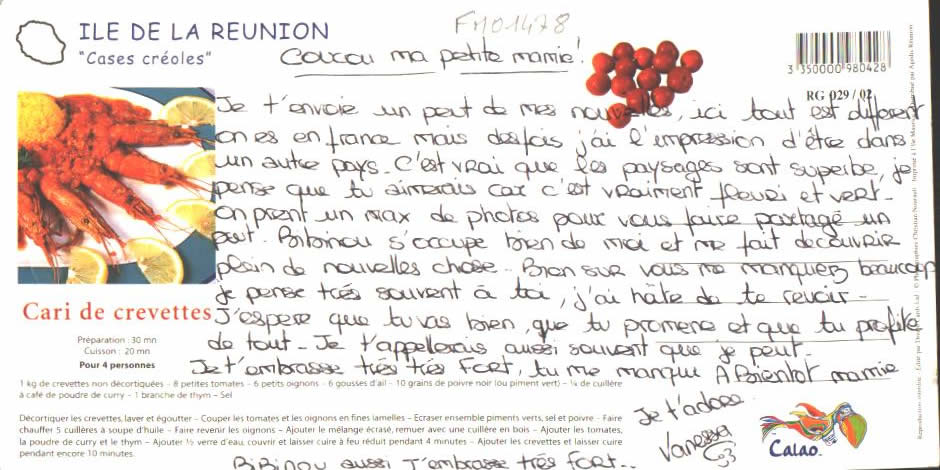 ILE DE LA REUNION
"Cases créoles"
FM01478
Coucou ma petite mamie!
3 350000 980428
RG 029 / 02
Je t'envoie un peut de mes nouvelles, ici tout est different
on es en france mais desfois j'ai l'impression d'être dans
un autre pays. C'est vrai que les paysages sont superbe, je
pense que tu aimerais car c'est vraiment fleuri et vert.
On prent un max de photos pour vous faire partagé un
peut. Bibinou s'occupe bien de moi et me fait decouvrir
plein de nouvelles chose. Bien sur vous me manquez beaucoup
je pense trés souvent à toi, j'ai hâte de te revoir.
J'espere que tu vas bien, que tu promene et que tu profite
de tout. Je t'appellerais aussi souvent que je peut.
Je t'embrasse trés trés FORT, tu me manque A Bientot mamie
Je t'adore
Vanessa
BiBinou aussi T'embrasse trés FORT..
Cari de crevettes
Préparation : 30 mn
Cuisson : 20 mn
Pour 4 personnes
1 kg de crevettes non décortiquées – 8 petites tomates – 6 petits oignons – 6 gousses d'ail – 10 grains de poivre noir (ou piment vert) – ¼ de cuillère
à café de poudre de curry – 1 branche de thym – Sel
Décortiquer les crevettes, laver et égoutter – Couper les tomates et les oignons en fines lamelles – Ecraser ensemble piments verts, sel et poivre - Faire
chauffer 5 cuillères à soupe d'huile – Faire revenir les oignons – Ajouter le mélange écrasé, remuer avec une cuillère en bois – Ajouter les tomates,
la poudre de curry et le thym – Ajouter ½ verre d'eau, couvrir et laisser cuire à feu réduit pendant 4 minutes – Ajouter les crevettes et laisser cuire
pendant encore 10 minutes.
Calao